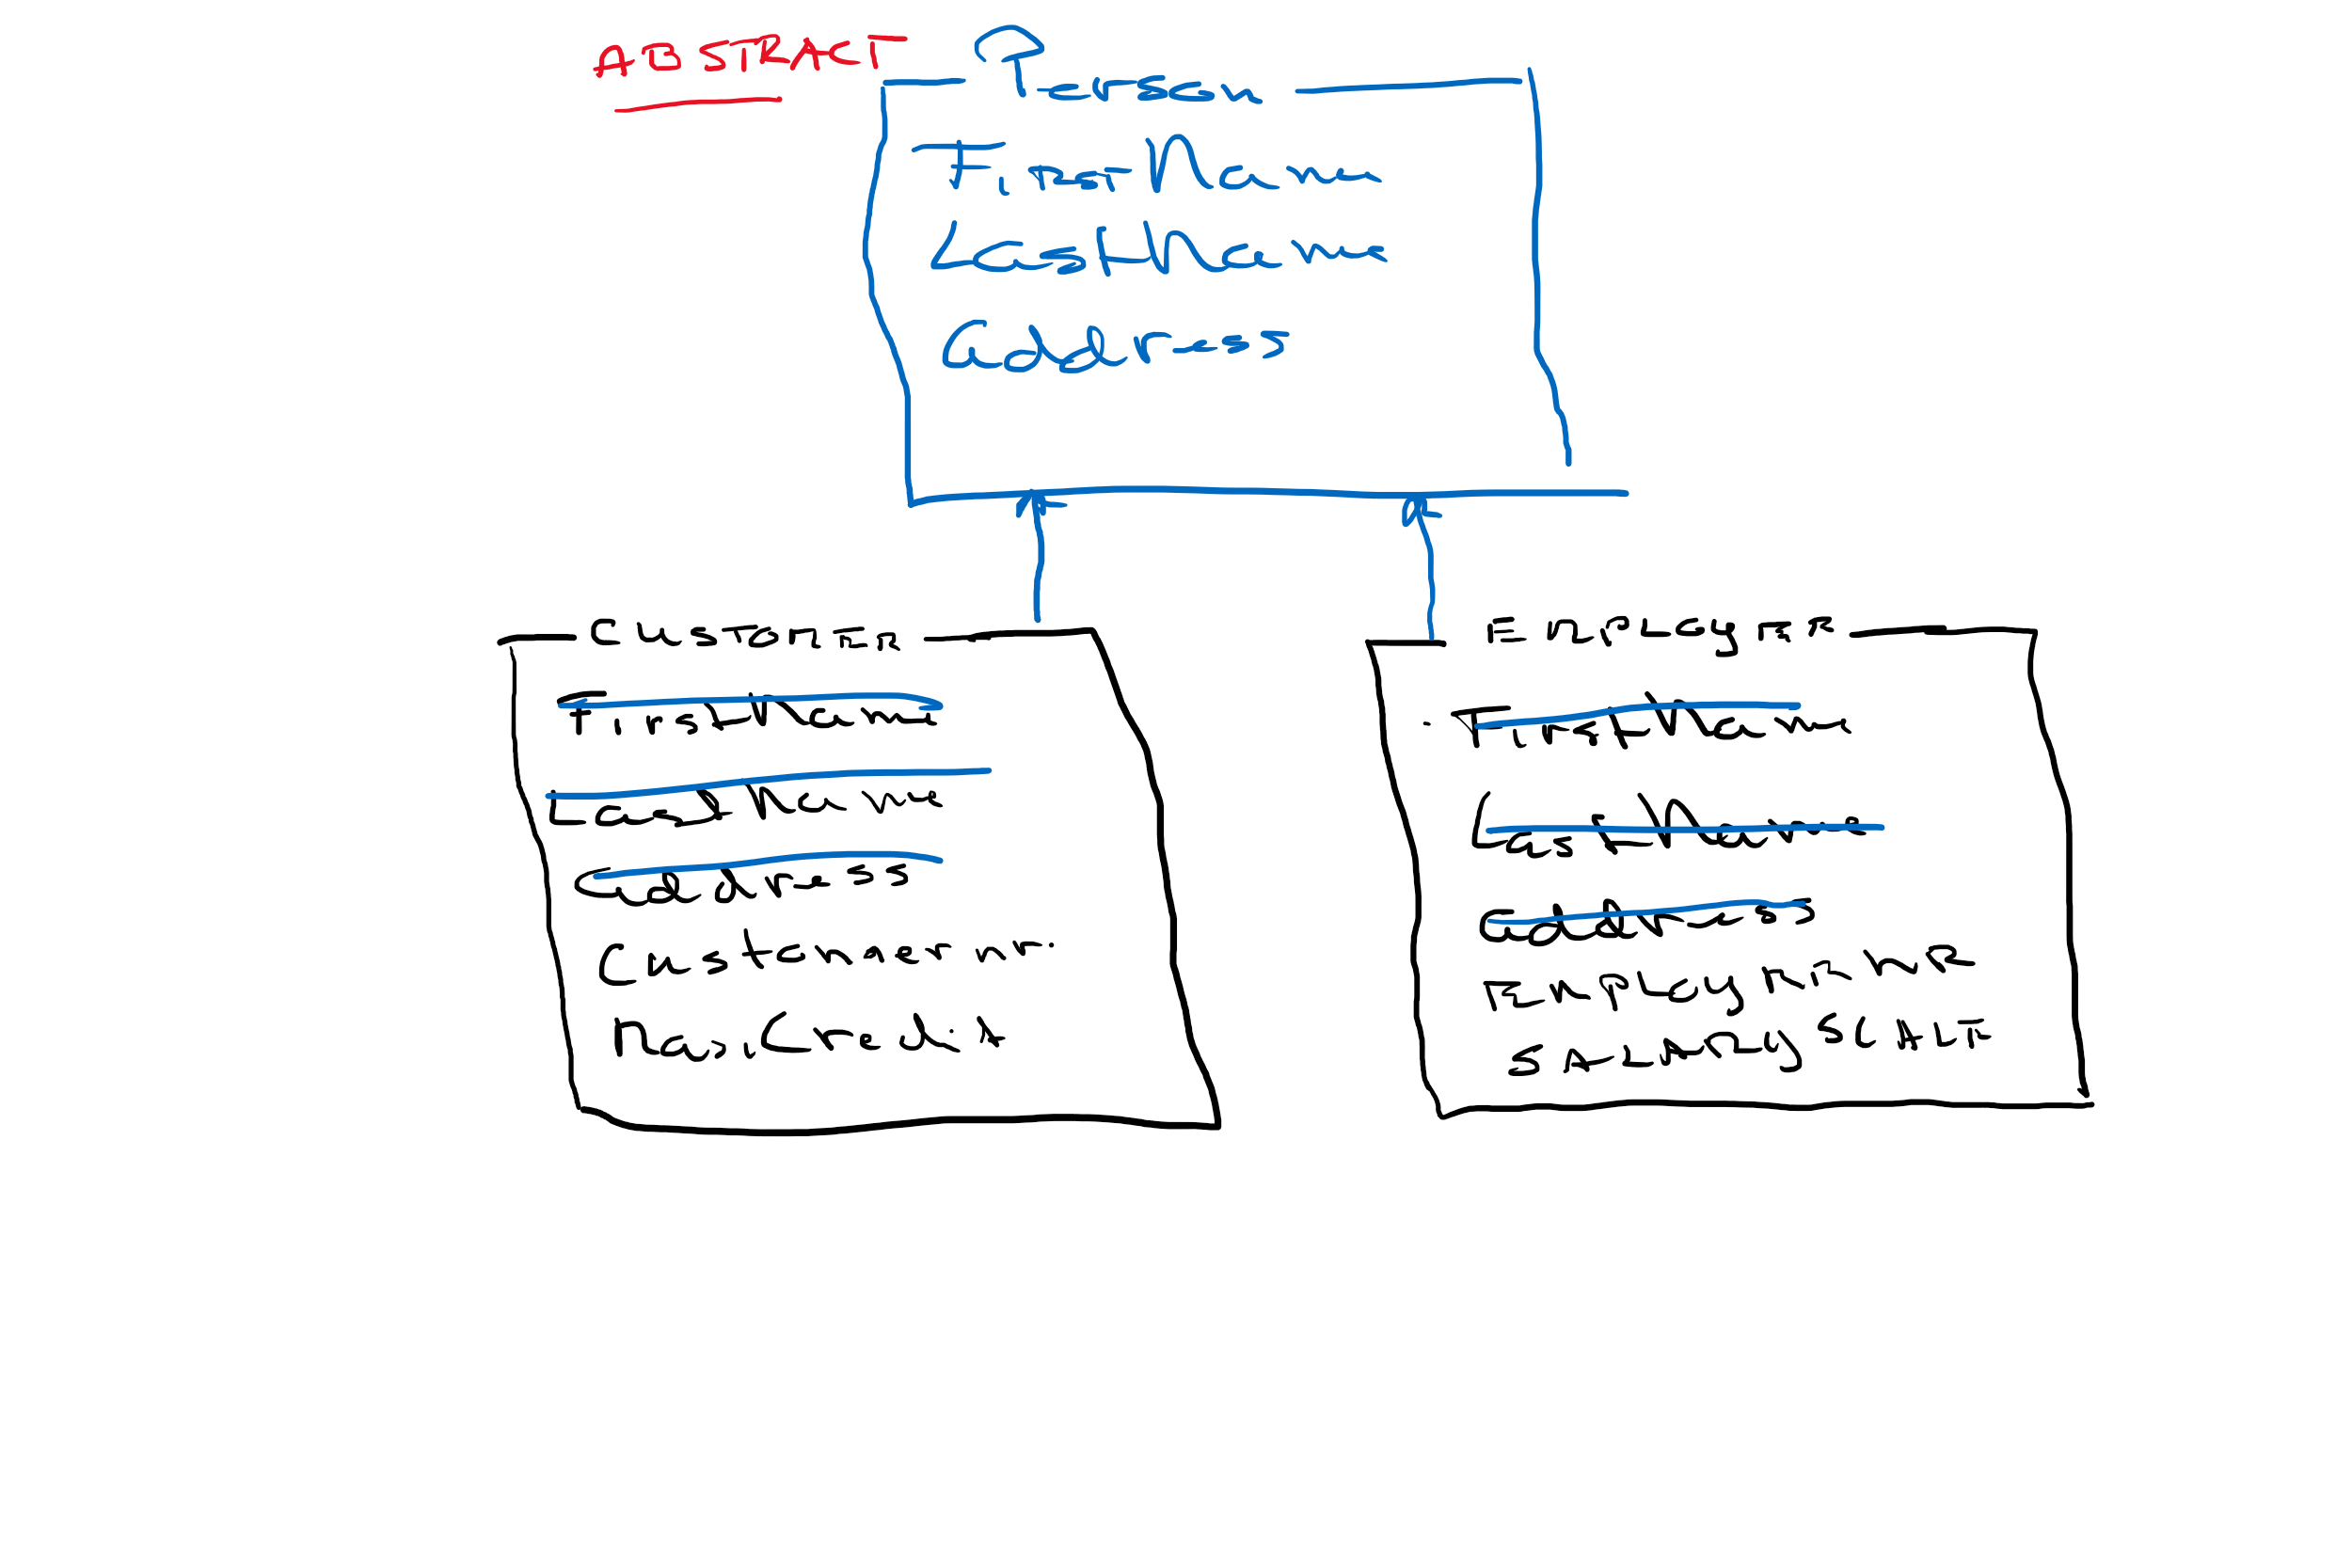 ABSTRACT
Person
FirstName
LastName
Address
CUSTOMER
FirstName
LastName
Address
Customer nr.
MaxCredit
EMPLOYEE
FirstName
LastName
Address
EMPLOYEE NR
SALARYSCHIJF